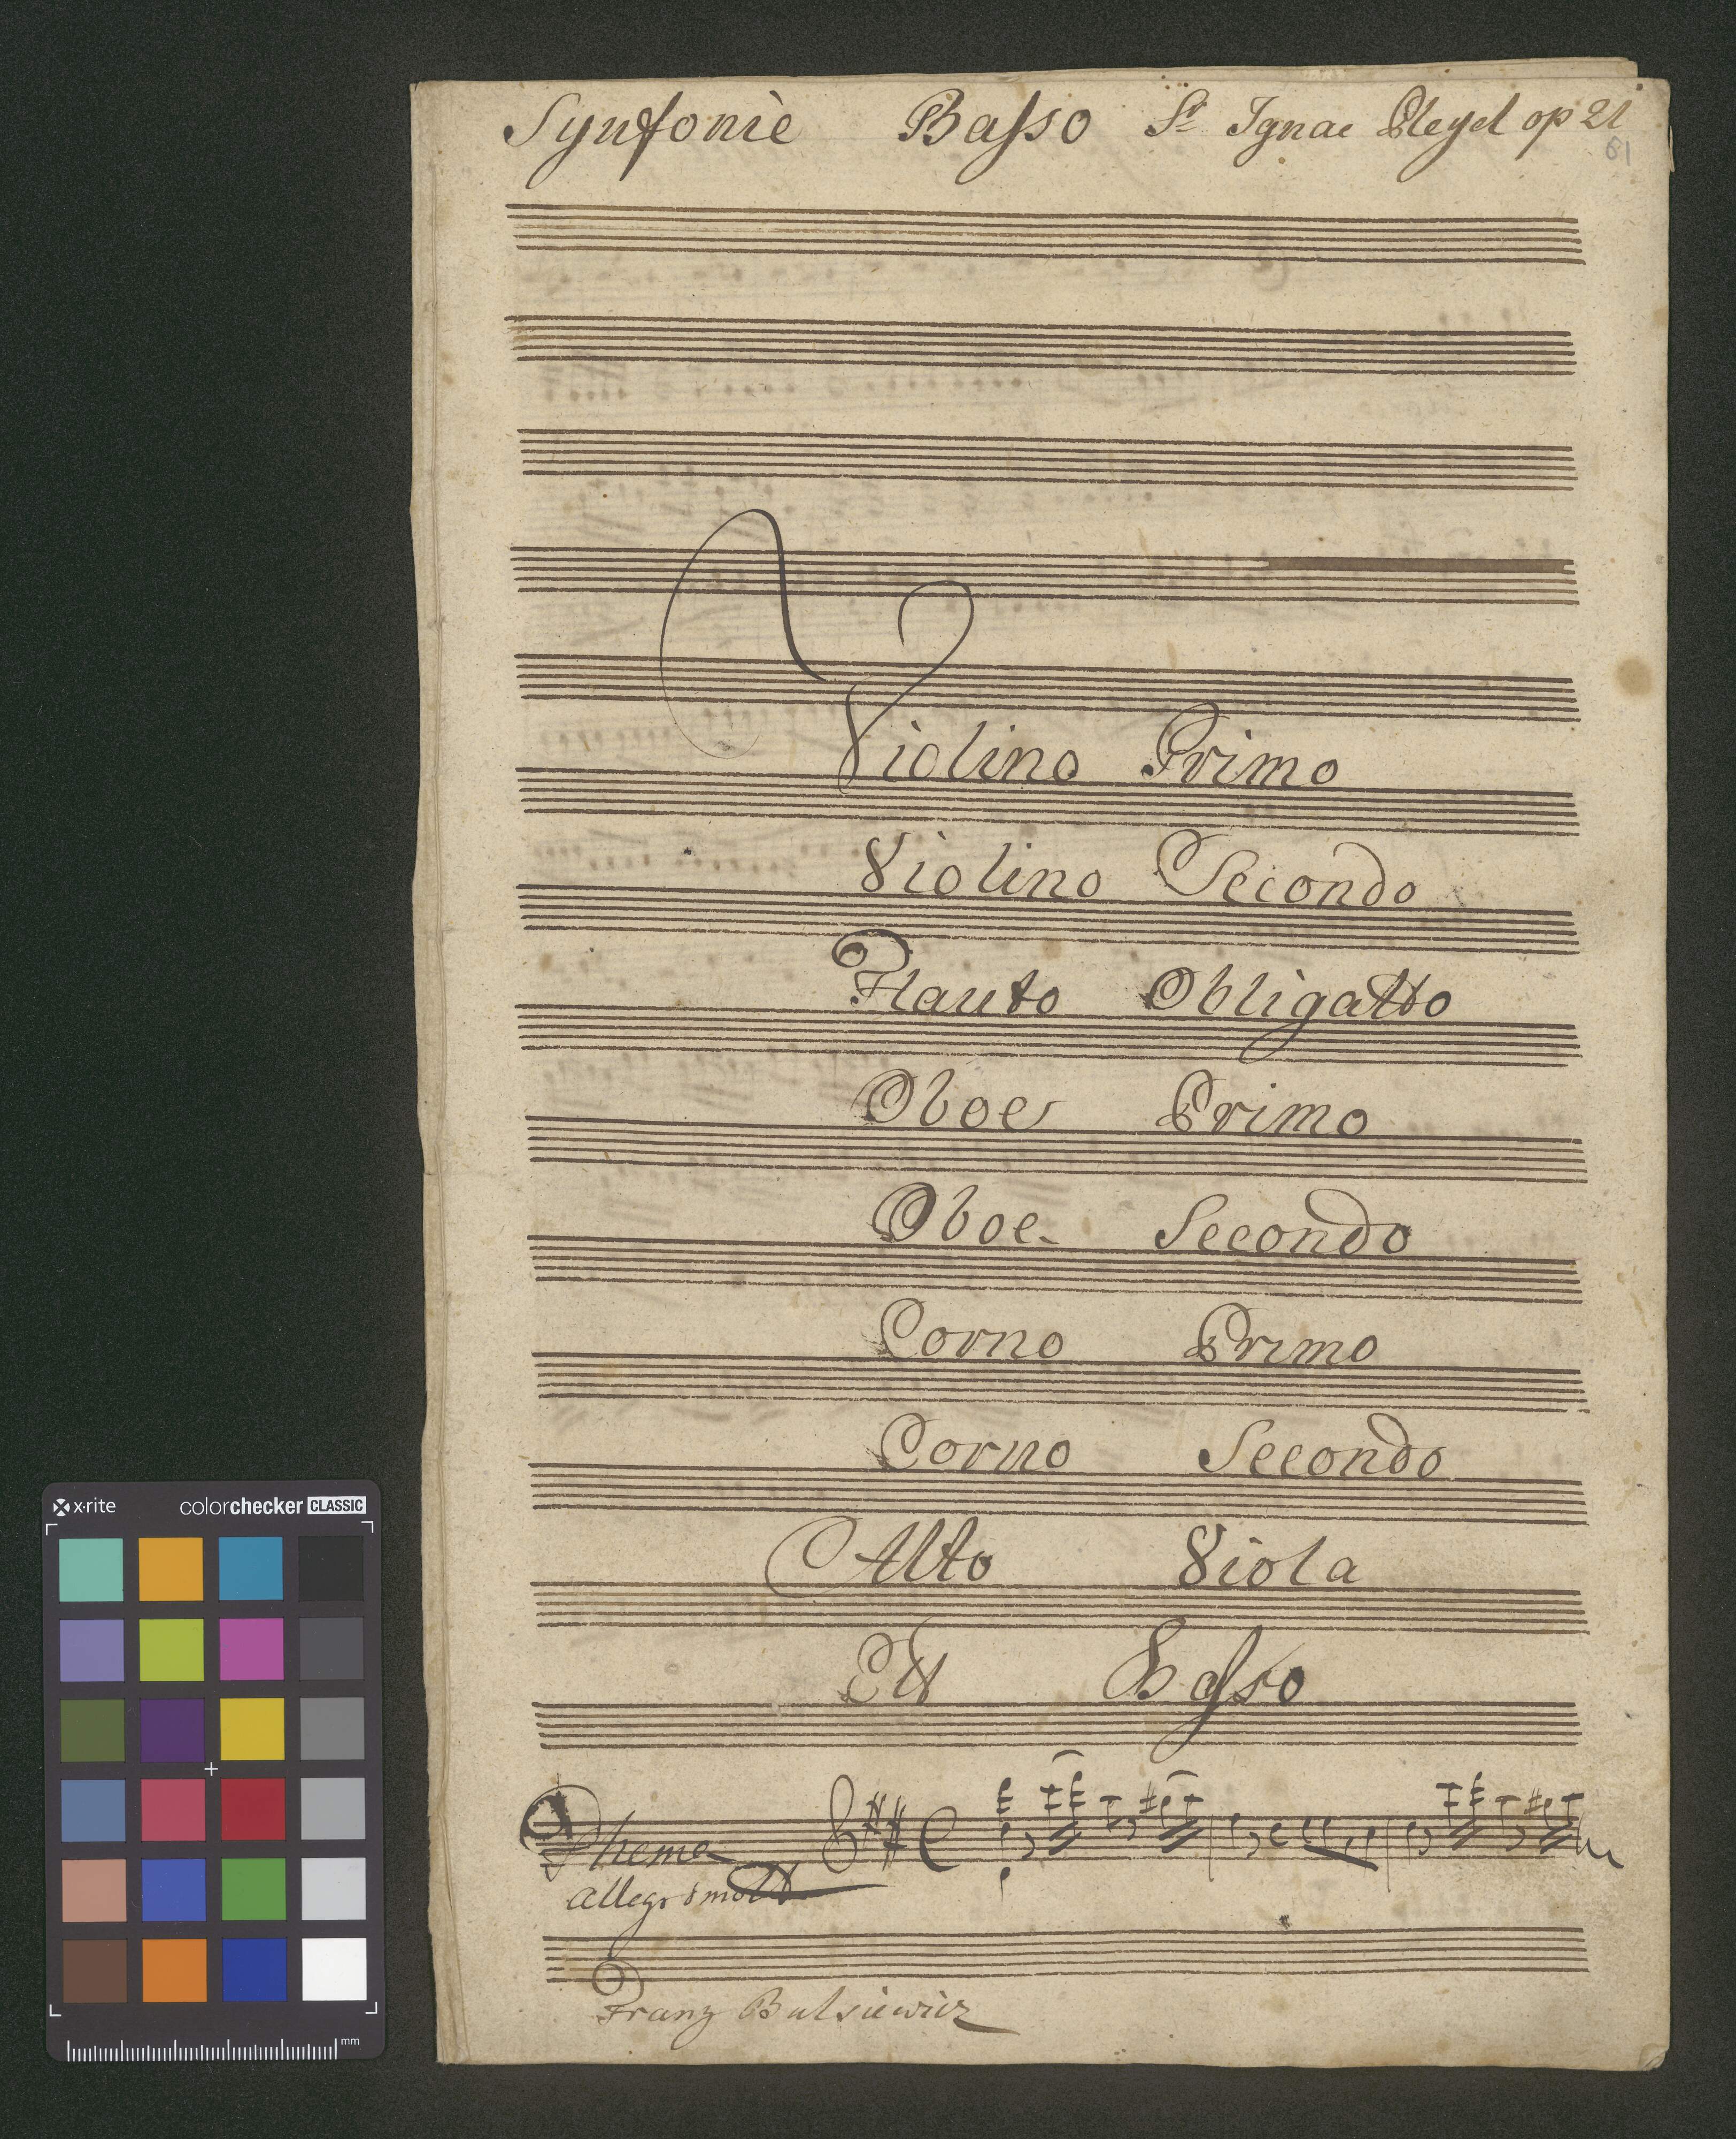 Synfonie Basso Sr Ignac Pleyel op 21
61
Violino Primo
Violino Secondo
Flauto Obligatto
Oboe Primo
Oboe Secondo
Corno Primo
Corno Secondo
Alto Viola
Et Basso
Thema
allegro molto
Franz Bulsiewicz
x-rite colorchecker CLASSIC
mm